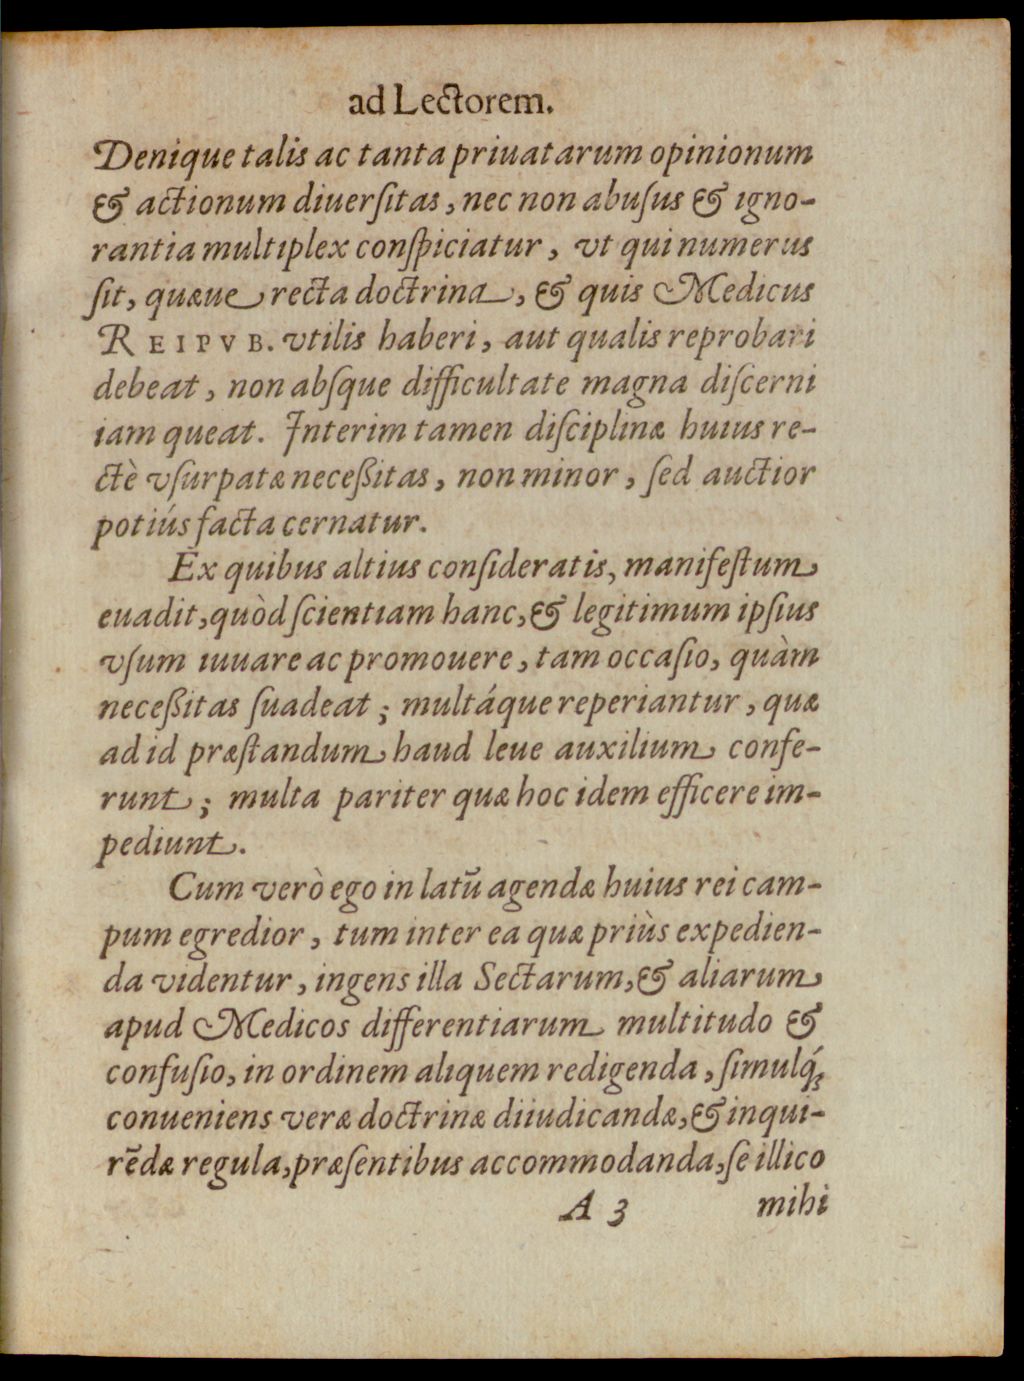 ad Lectorem.
Denique talis ac tanta priuatarum opinionum
& actionum diuerſitas, nec non abuſus & igno-
rantia multiplex conſpiciatur, vt qui numerus
ſit, quæue recta doctrina, & quis Medicus
REIPVB. vtilis haberi, aut qualis reprobari
debeat, non abſque difficultate magna diſcerni
iam queat. Interim tamen diſciplinæ huius re-
ctè vſurpatæ neceßitas, non minor, ſed auctior
potiús facta cernatur.
Ex quibus altius conſideratis, manifeſtum
euadit, quòd ſcientiam hanc, & legitimum ipſius
vſum iuuare ac promouere, tam occaſio, quàm
neceßitas ſuadeat; multáque reperiantur, quæ
ad id præſtandum haud leue auxilium confe-
runt; multa pariter quæ hoc idem efficere im-
pediunt.
Cum verò ego in latū agendæ huius rei cam-
pum egredior, tum inter ea quæ priùs expedien-
da videntur, ingens illa Sectarum, & aliarum
apud Medicos differentiarum multitudo &
confuſio, in ordinem aliquem redigenda, ſimulq́;
conueniens veræ doctrinæ diiudicandæ, & inqui-
rēdæ regula, præſentibus accommodanda, ſe illico
A 3 mihi